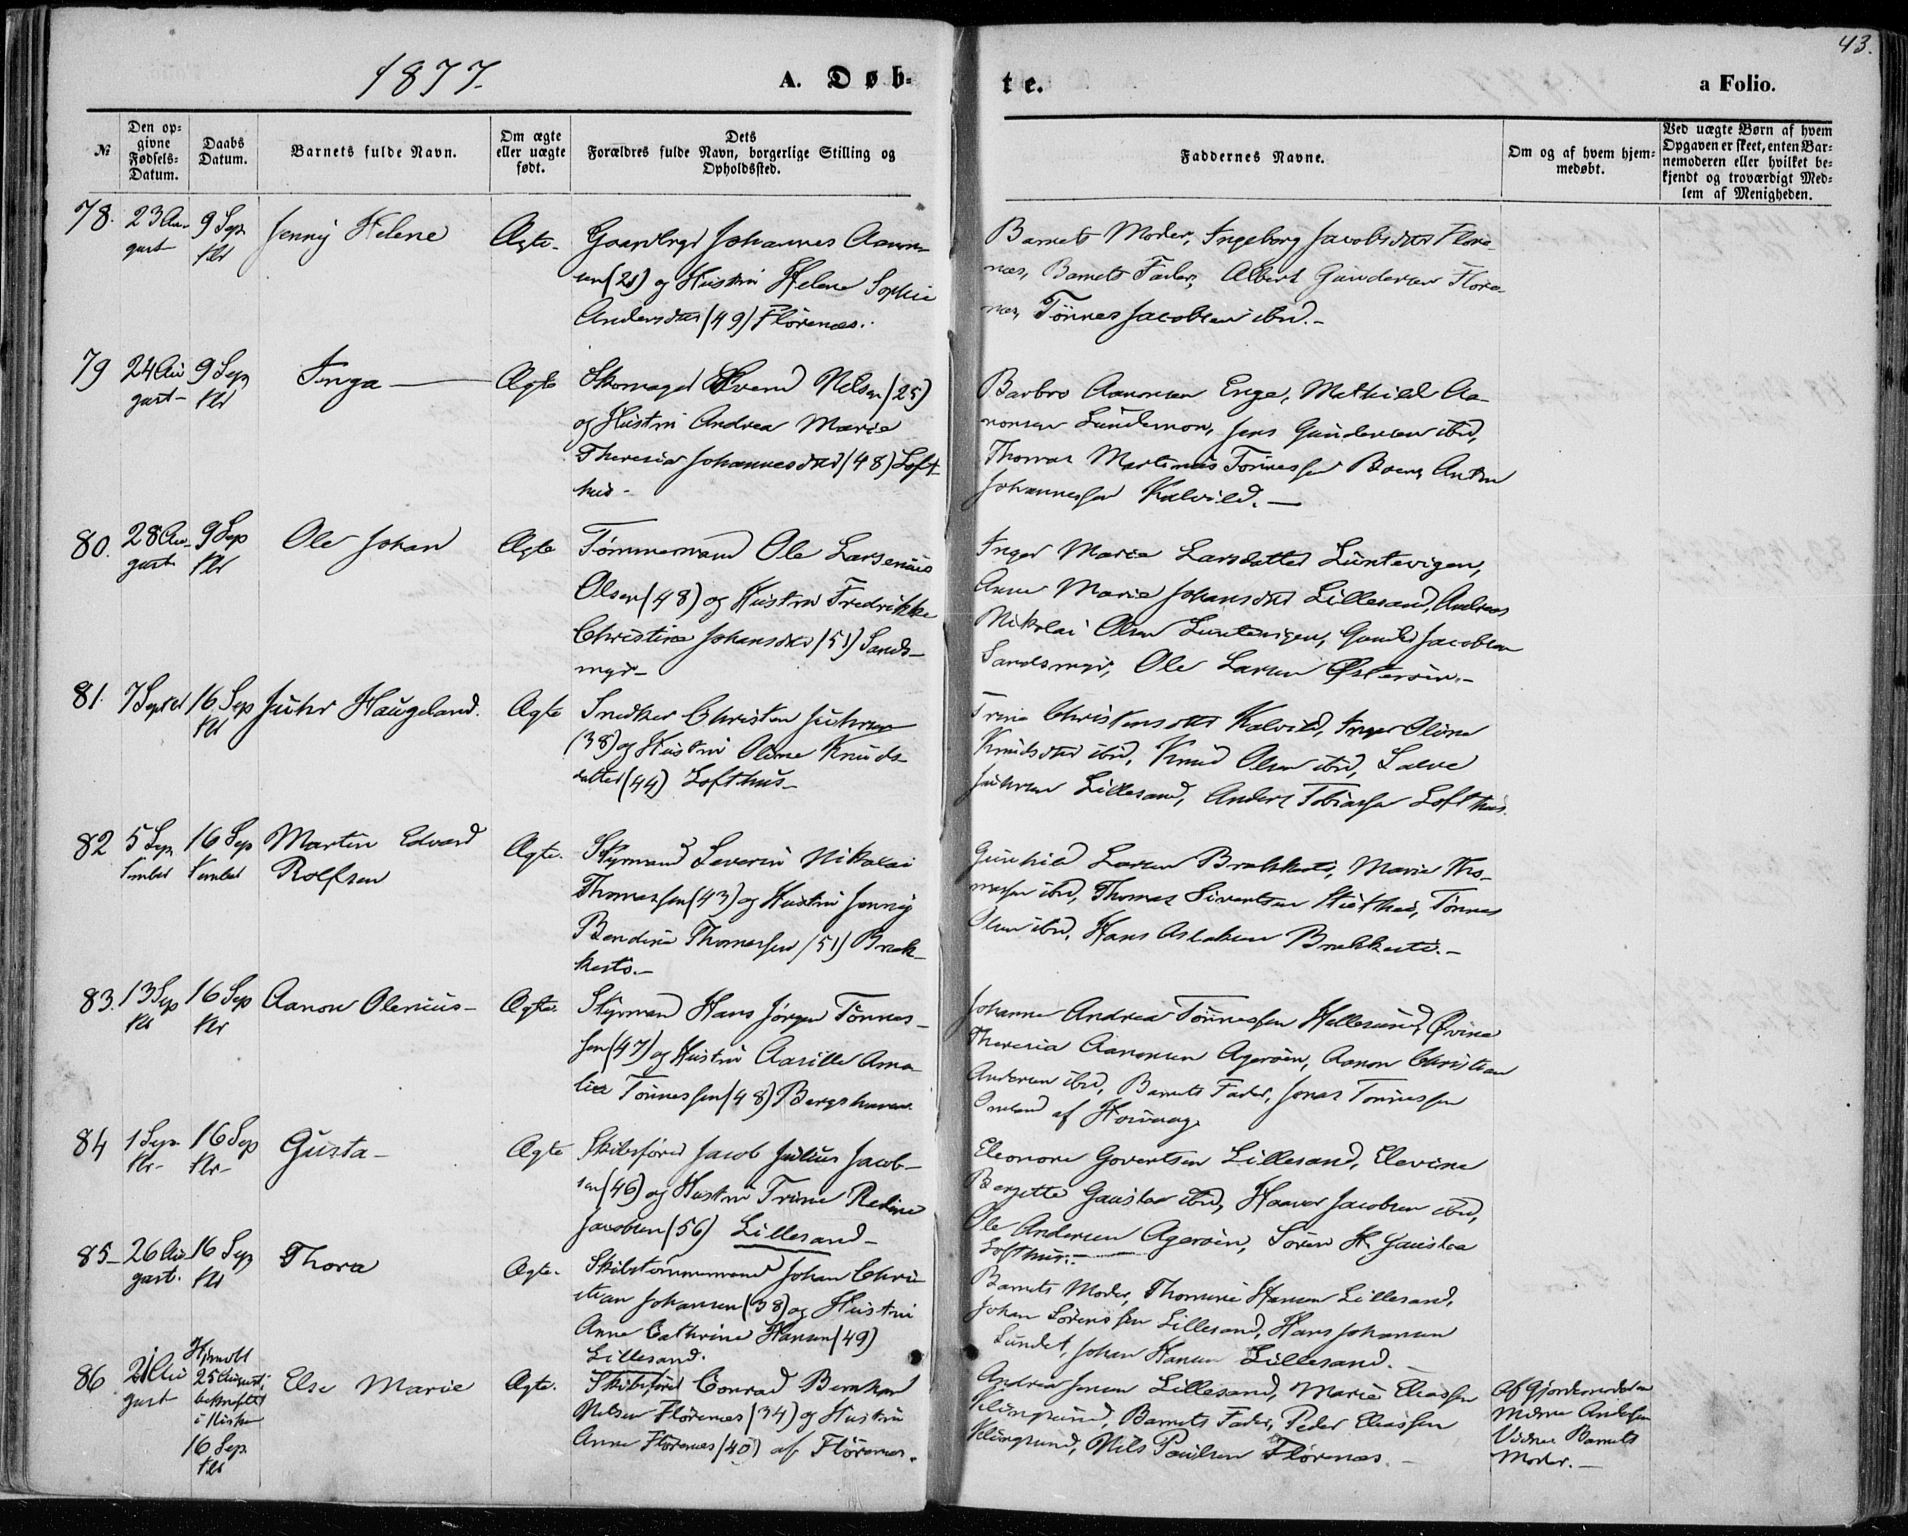 1877.
A. Døb-
te.
a Folio.
43.
№
Den op-
givne
Fødsels-
Datum.
Daabs
Datum.
Barnets fulde Navn.
Om ægte
eller uægte
født.
Dets
Forældres fulde Navn, borgerlige Stilling og
Opholdssted.
Faddernes Navne.
Om og af hvem hjem-
medøbt.
Ved uægte Børn af hvem
Opgaven er skeet, enten Bar-
nemoderen eller hvilket be-
kjendt og troværdigt Med-
lem af Menigheden.
78.
23 Au-
gust
9 Sep
Jenny Helene
Ægte.
Johannes Aanon-
sen (21) og Hustru Helene Sophie
Andersdtr (49) Flørenæs.
Barnets Moder, Ingeborg Jacobsdtr Fløre-
næs, Barnets Fader, Albert Gundersen Fløre-
næs, Tønnes Jacobsen ibd.-
79
24 Au
gust-
9 Sep
Inga
Ægte
Skomager Svend Nelsen (25)
og Hustru Andrea Marie
Theresia Johannesdtr (48) Loft-
hus-
Barbro Aanonsen Enge, Mathild Aa-
nonsen Lundemon, Jens Gundersen ibd,
Thomas Martinus Tønnessen Boen, Anton
Johannessen Kalvild.-
80.
28 Au-
gust
9 Sep
Ole Johan
Ægte
Tømmermand Ole Larsenius
Olsen (48) og Hustru Fredrikke
Christine Johansdtr (51) Sands-
myr-
Inger Marie Larsdatter Luntevigen,
Anne Marie Johansdtr Lillesand, Andreas
Nikolai Olsen Luntevigen, Gunder Jacobsen
Sandsmyr, Ole Larsen Østerøen.-
81.
7 Septer
16 Sep
Juhr Haugeland.
Ægte
Snedker Christen Juhrsen
(38) og Hustru Oline Knuds-
datter (44) Lofthus-
Trine Christensdtr Kalvild, Inger Oline
Knudsdtr ibd, Knud Olsen ibd, Salve
Juhrsen Lillesand, Anders Tobiassen Lofthus.
82
5 Sep
tember
16 Sep
tember
Martin Edvard
Rolfsen
Ægte.
Styrmand Severin Nikolai
Thomassen (43) og Hustru Jenny
Bendine Thomassen (51) Bræk-
kestø.-
Gunhild Larsen Brækkestø, Marie Tho-
massen ibd, Thomas Sivertsen, Tønnes
Olsen ibd, Hans Aslaksen Brækkestø.-
83.
13 Sep
16 Sep
Aanon Olenius-
Ægte.
Styrmand Hans Jørgen Tønnes-
sen (47) og Hustru Aasille Ama-
lie Tønnessen (48) Bergshaven
Johanne Andrea Tønnessen Hellesund, Øvine
Theresia Aanonsen Agerøen, Aanon Christian
Andersen ibd, Barnets Fader, Jonas Tønnessen
Omland af Høivaag.
84
1 Sep
16 Sep
Gusta-
Ægte
Skibsfører Jacob Julius Jacob-
sen (46) og Hustru Trine Regine
Jacobsen (56) Lillesand-
Eleonore Govertsen Lillesand, Elevine
Bergette Gauslaa ibd, Haavor Jacobsen ibd,
Ole Andersen Agerøen, Søren H. Gauslaa
Lofthus.-
85-
26 Au
gust.
16 Sep
Thora
Ægte.
Skibstømmermand Johan Chri-
stian Johansen (38) og Hustru
Anne Cathrine Hansen (49)
Lillesand.
Barnets Moder, Thomine Hansen Lillesand,
Johan Sørenssen Lillesand, Hans Johansen
Sundet, Johan Hansen Lillesand.-
86
21 Au
gust
Hjmdbt
25 August,
bekræftet
i Kirken
16 Sep
Else Marie
Ægte.
Skibsfører Conrad Bernhard
Nelsen Flørenæs (34) og Hustru
Anne Flørenæs (40) af Flørenæs.
Andrea Jensen Lillesand, Marie Eliassen
Kilingsund, Barnets Fader, Peder Eliassen
Kilingsund, Nils Paulsen Flørenæs.-
Af Gjordemoderen
Andersen
Vidne Barnets
Moder.-